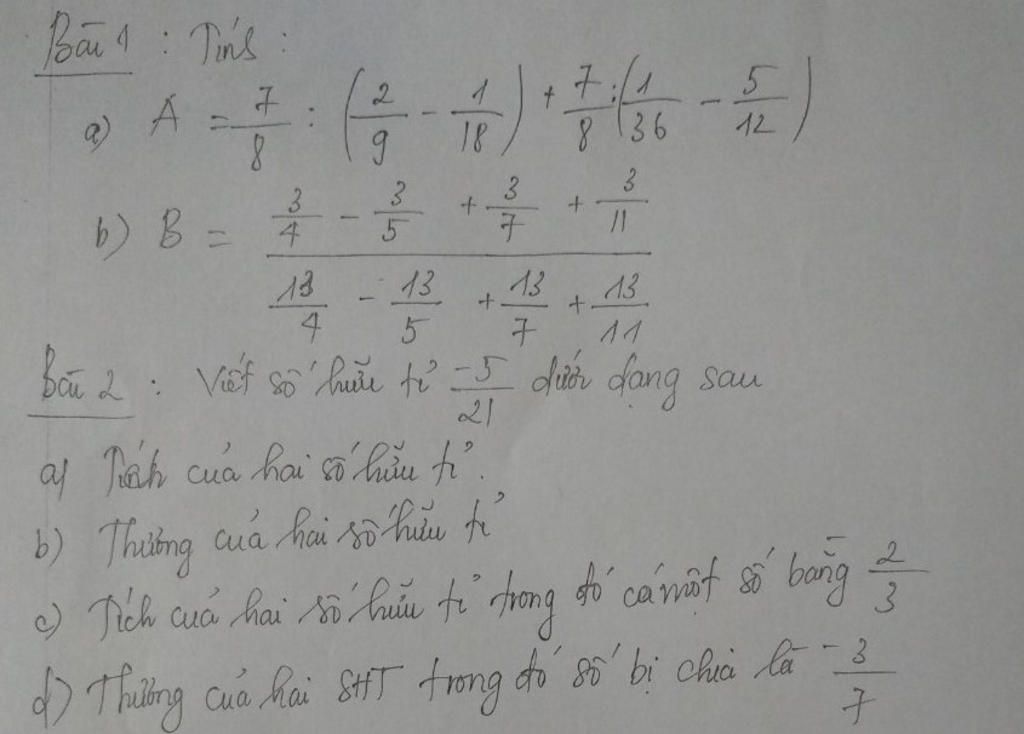 Bài 1 : Tính :
a) A = 7/8 : (2/9 - 1/18) + 7/8 : (1/36 - 5/12)
b) B = (3/4 - 3/5 + 3/7 + 3/11) / (13/4 - 13/5 + 13/7 + 13/11)
Bài 2 : Viết số hữu tỉ -5/21 dưới dạng sau
a) Tích của hai số hữu tỉ.
b) Thương của hai số hữu tỉ
c) Tích của hai số hữu tỉ trong đó có một số bằng -2/3
d) Thương của hai SHT trong đó số bị chia là -3/7